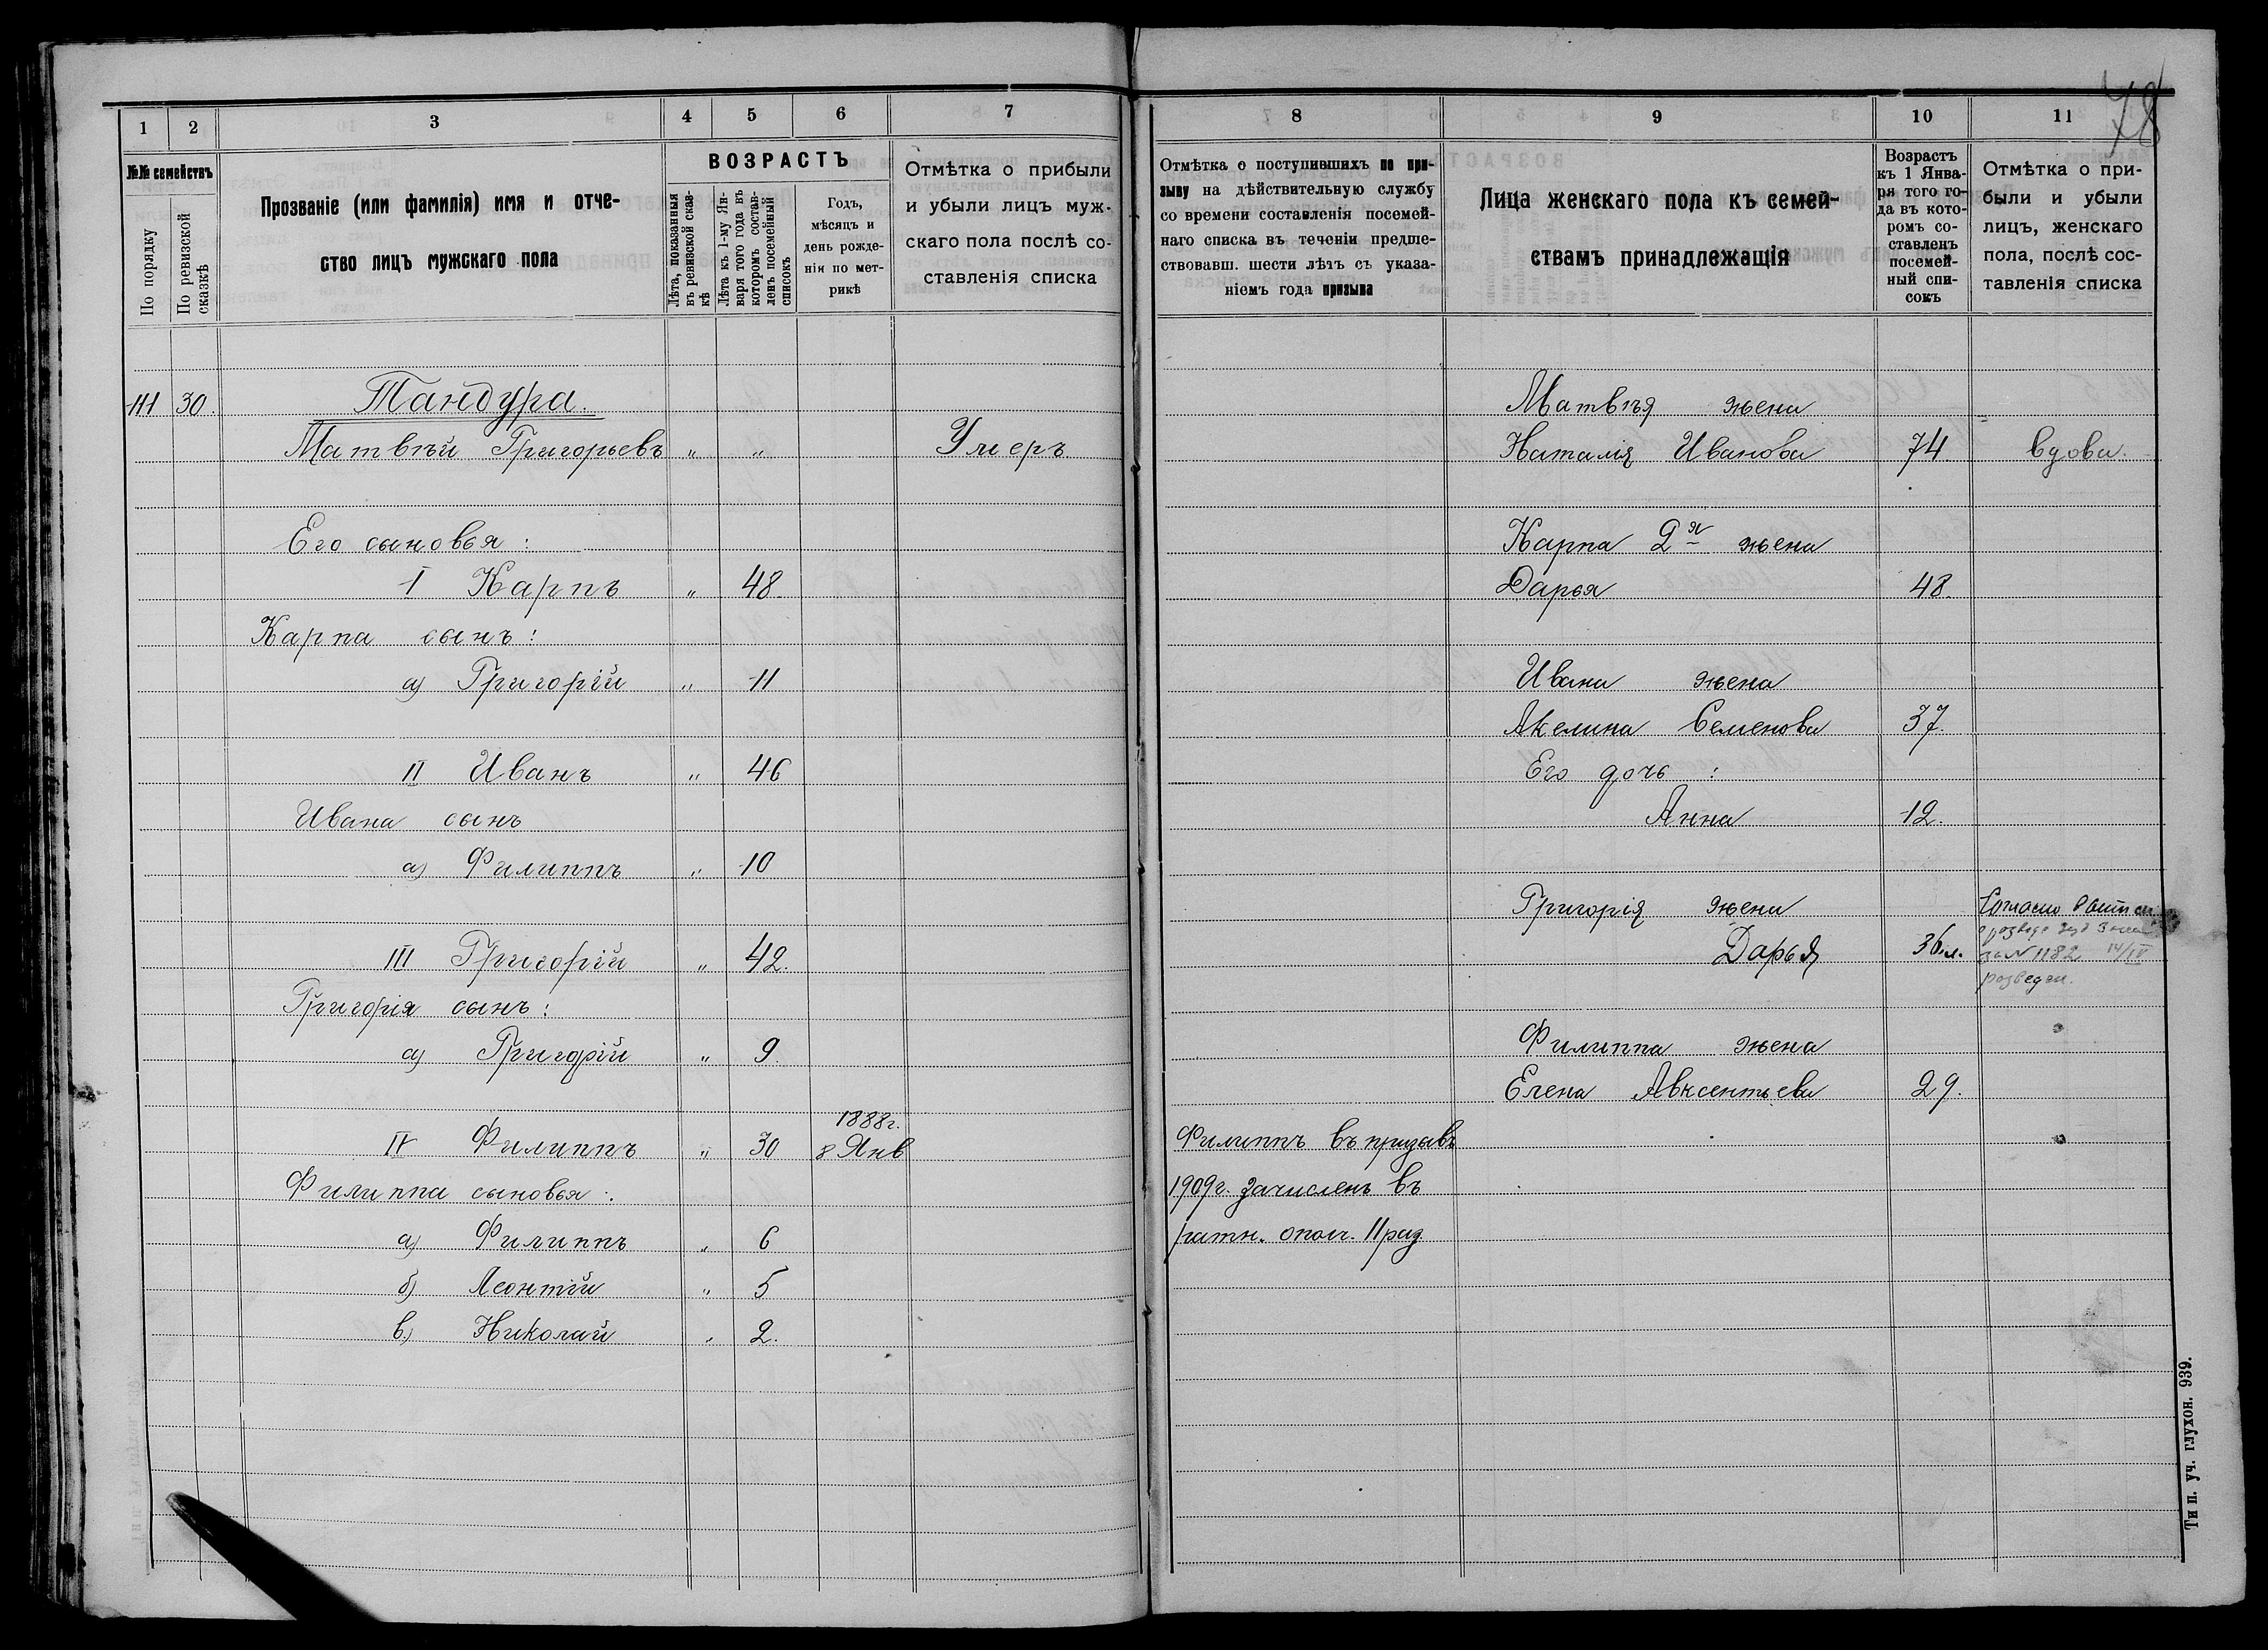 78
1 2 3 4 5 6 7
№№ семействъ
По порядку
По ревизской сказкѣ
Прозваніе (или фамилія) имя и отче-
ство лицъ мужскаго пола
ВОЗРАСТЪ
Лѣта, показанныя
въ ревизской сказ-
кѣ
Лѣта къ 1-му Ян-
варя того года въ
которомъ состав-
ленъ посемейный
списокъ
Годъ,
мѣсяцъ и
день рожде-
нія по мет-
рикѣ
Отмѣтка о прибыли
и убыли лицъ муж-
скаго пола послѣ со-
ставленія списка
111 30. Тандура.
Матвѣй Григорьевъ „ „ Умеръ.
Его сыновья:
I Карпъ „ 48.
Карпа сынъ:
а) Григорій „ 11
II Иванъ „ 46
Ивана сынъ
а) Филиппъ „ 10
III Григорій „ 42.
Григорія сынъ:
а) Григорій „ 9.
1888г.
IV Филиппъ „ 30 8 Янв
Филиппа сыновья:
а) Филиппъ „ 6
б) Леонтій „ 5
в) Николай „ 2.
8 9 10 11
Отмѣтка о поступившихъ по при-
зыву на дѣйствительную службу
со времени составленія посемей-
наго списка въ теченіи предше-
ствовавш. шести лѣтъ съ указа-
ніемъ года призыва
Лица женскаго пола къ семей-
ствамъ принадлежащія
Возрастъ
къ 1 Янва-
ря того го-
да въ кото-
ромъ со-
ставленъ
посемей-
ный спи-
сокъ
Отмѣтка о при-
были и убыли
лицъ, женскаго
пола, послѣ сос-
тавленія списка
Матвѣя жена
Наталія Иванова 74. вдова.
Карпа 2я жена
Дарья 48.
Ивана жена
Акелина Семенова 37.
Его дочь:
Анна 12.
Григорія жена Согласно
Дарья 36 л.
за № 1182 14/IV
розведен.
Филиппа жена
Елена Авксентьева 29.
Филиппъ въ призывъ
1909г. зачисленъ въ
ратн. ополч. II раз
Тип. уч. глухон. 939.